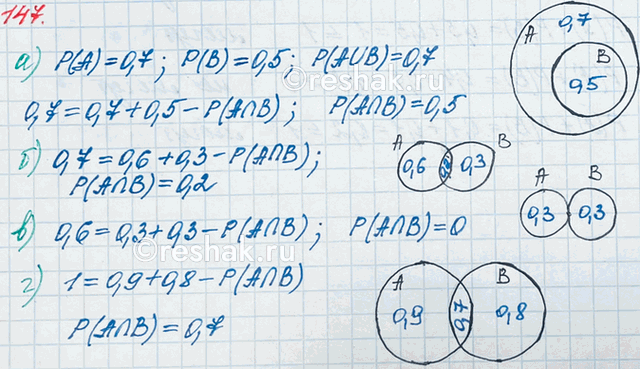 147.
а) P(A)=0,7; P(B)=0,5; P(A∪B)=0,7
0,7=0,7+0,5-P(A∩B); P(A∩B)=0,5
A 0,7 B 0,5
б) 0,7=0,6+0,3-P(A∩B);
P(A∩B)=0,2
A 0,6 0,2 0,3 B
в) 0,6=0,3+0,3-P(A∩B); P(A∩B)=0
A B
0,3 0,3
г) 1=0,9+0,8-P(A∩B)
P(A∩B)=0,7
A B
0,9 0,7 0,8
©reshak.ru